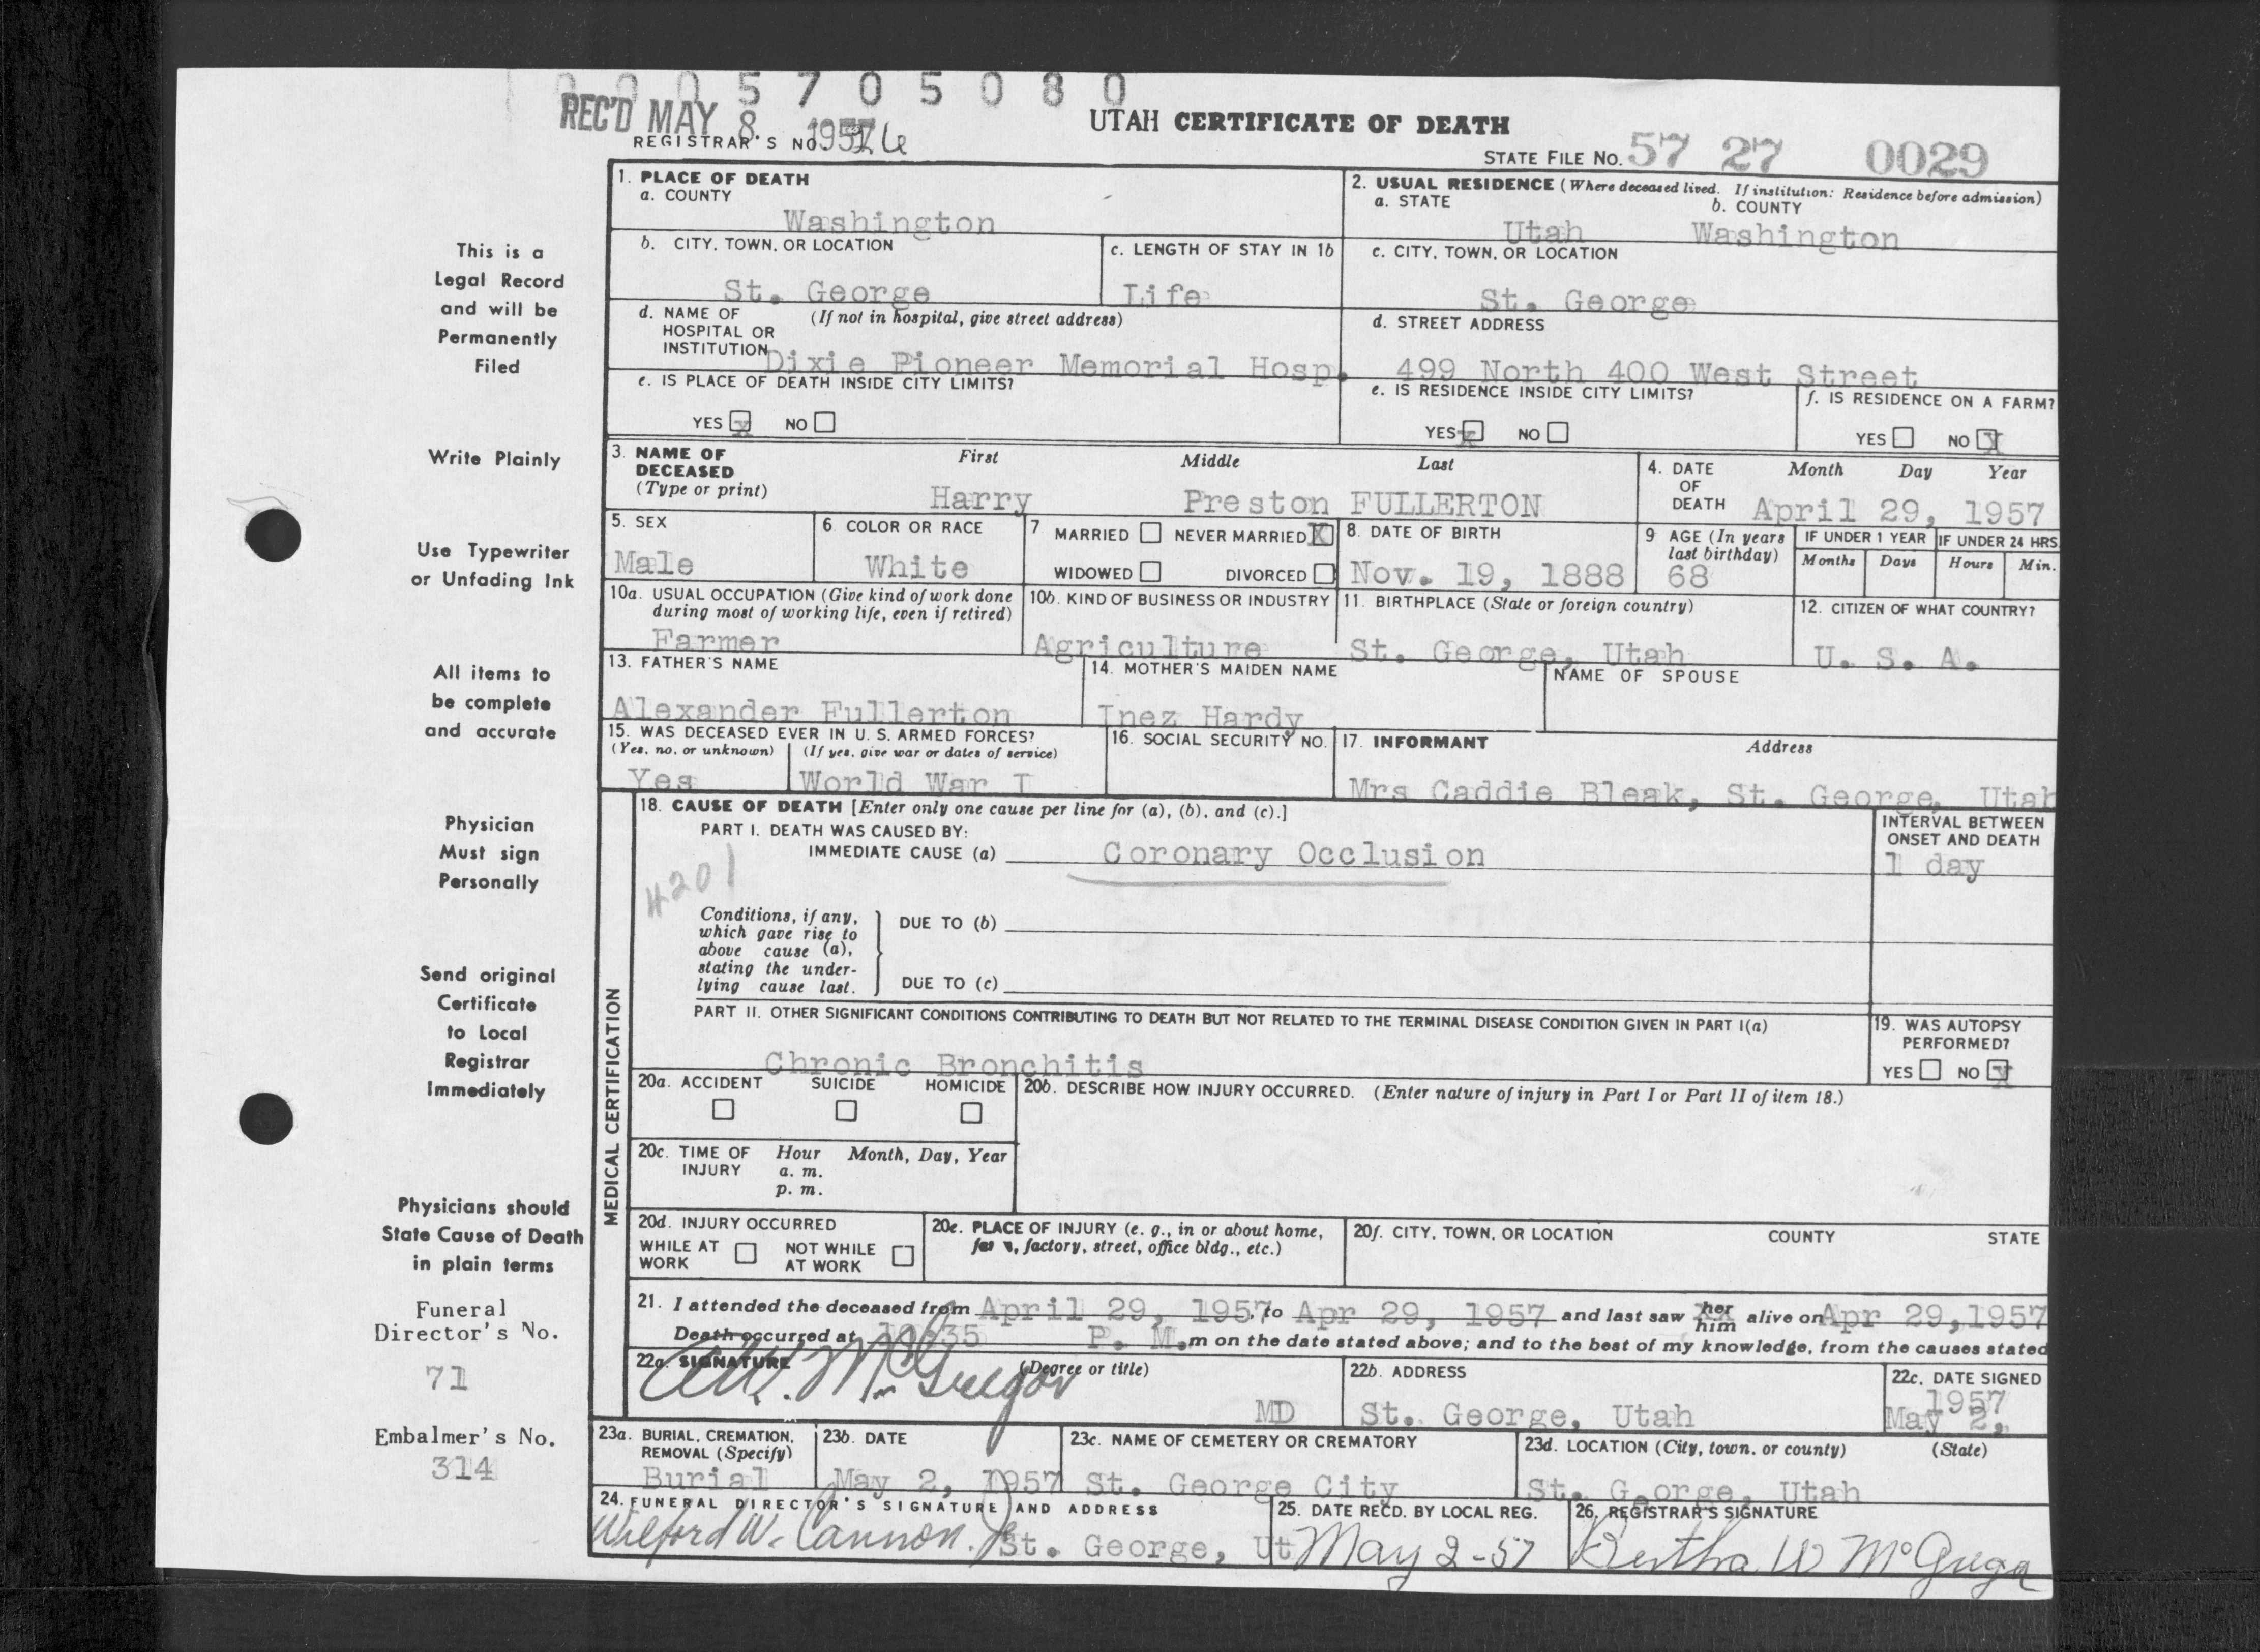 0 0 0 5 7 0 5 0 8 0
REC'D MAY 8. 1957
UTAH CERTIFICATE OF DEATH
REGISTRAR'S NO.
STATE FILE No. 57 27 0029
This is a
Legal Record
and will be
Permanently
Filed
Write Plainly
Use Typewriter
or Unfading Ink
All items to
be complete
and accurate
Physician
Must sign
Personally
Send original
Certificate
to Local
Registrar
Immediately
Physicians should
State Cause of Death
in plain terms
Funeral
Director's No.
71
Embalmer's No.
314
1. PLACE OF DEATH
a. COUNTY
Washington
2. USUAL RESIDENCE (Where deceased lived. If institution: Residence before admission)
a. STATE b. COUNTY
Utah Washington
b. CITY, TOWN, OR LOCATION
St. George
c. LENGTH OF STAY IN 1b
Life
c. CITY, TOWN, OR LOCATION
St. George
d. NAME OF (If not in hospital, give street address)
HOSPITAL OR
INSTITUTION Dixie Pioneer Memorial Hosp.
d. STREET ADDRESS
499 North 400 West Street
e. IS PLACE OF DEATH INSIDE CITY LIMITS?
YES x NO
e. IS RESIDENCE INSIDE CITY LIMITS?
YES x NO
f. IS RESIDENCE ON A FARM?
YES NO X
3. NAME OF First Middle Last
DECEASED
(Type or print) Harry Preston FULLERTON
4. DATE Month Day Year
OF
DEATH April 29, 1957
5. SEX
Male
6. COLOR OR RACE
White
7 MARRIED NEVER MARRIED X
WIDOWED DIVORCED
8. DATE OF BIRTH
Nov. 19, 1888
9 AGE (In years
last birthday)
68
IF UNDER 1 YEAR IF UNDER 24 HRS.
Months Days Hours Min.
10a. USUAL OCCUPATION (Give kind of work done
during most of working life, even if retired)
Farmer
10b. KIND OF BUSINESS OR INDUSTRY
Agriculture
11. BIRTHPLACE (State or foreign country)
St. George, Utah
12. CITIZEN OF WHAT COUNTRY?
U. S. A.
13. FATHER'S NAME
Alexander Fullerton
14. MOTHER'S MAIDEN NAME
Inez Hardy
NAME OF SPOUSE
15. WAS DECEASED EVER IN U. S. ARMED FORCES?
(Yes, no, or unknown) (If yes, give war or dates of service)
Yes World War I
16. SOCIAL SECURITY NO.
17. INFORMANT Address
Mrs Caddie Bleak, St. George, Utah
MEDICAL CERTIFICATION
18. CAUSE OF DEATH [Enter only one cause per line for (a), (b), and (c).]
PART I. DEATH WAS CAUSED BY:
IMMEDIATE CAUSE (a) Coronary Occlusion
INTERVAL BETWEEN
ONSET AND DEATH
1 day
4201
Conditions, if any,
which gave rise to
above cause (a),
stating the under-
lying cause last.
DUE TO (b)
DUE TO (c)
PART II. OTHER SIGNIFICANT CONDITIONS CONTRIBUTING TO DEATH BUT NOT RELATED TO THE TERMINAL DISEASE CONDITION GIVEN IN PART I(a)
Chronic Bronchitis
19. WAS AUTOPSY
PERFORMED?
YES NO X
20a. ACCIDENT SUICIDE HOMICIDE
20b. DESCRIBE HOW INJURY OCCURRED. (Enter nature of injury in Part I or Part II of item 18.)
20c. TIME OF Hour Month, Day, Year
INJURY a. m.
p. m.
20d. INJURY OCCURRED
WHILE AT NOT WHILE
WORK AT WORK
20e. PLACE OF INJURY (e. g., in or about home,
factory, street, office bldg., etc.)
20f. CITY, TOWN, OR LOCATION COUNTY STATE
21. I attended the deceased from April 29, 1957 to Apr 29, 1957 and last saw her him alive on Apr 29, 1957
Death occurred at :35 P. M. m on the date stated above; and to the best of my knowledge, from the causes stated
22a. SIGNATURE (Degree or title)
McGregor MD
22b. ADDRESS
St. George, Utah
22c. DATE SIGNED
1957
May 2,
23a. BURIAL, CREMATION,
REMOVAL (Specify)
Burial
23b. DATE
May 2, 1957
23c. NAME OF CEMETERY OR CREMATORY
St. George City
23d. LOCATION (City, town, or county) (State)
St. G.orge, Utah
24. FUNERAL DIRECTOR'S SIGNATURE AND ADDRESS
Wilford W. Cannon. St. George, Ut
25. DATE RECD. BY LOCAL REG.
May 2-57
26. REGISTRAR'S SIGNATURE
Bertha W McGrega